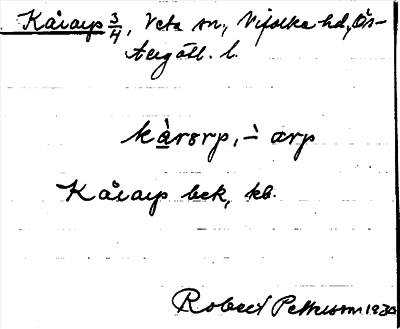 Kårarp 3/4, Veta sn, Vifolka hd, Ös-
tergötl. l.
kàrarp, -̀ arp
Kårarp bck, kb.
Robert Petterson 1930